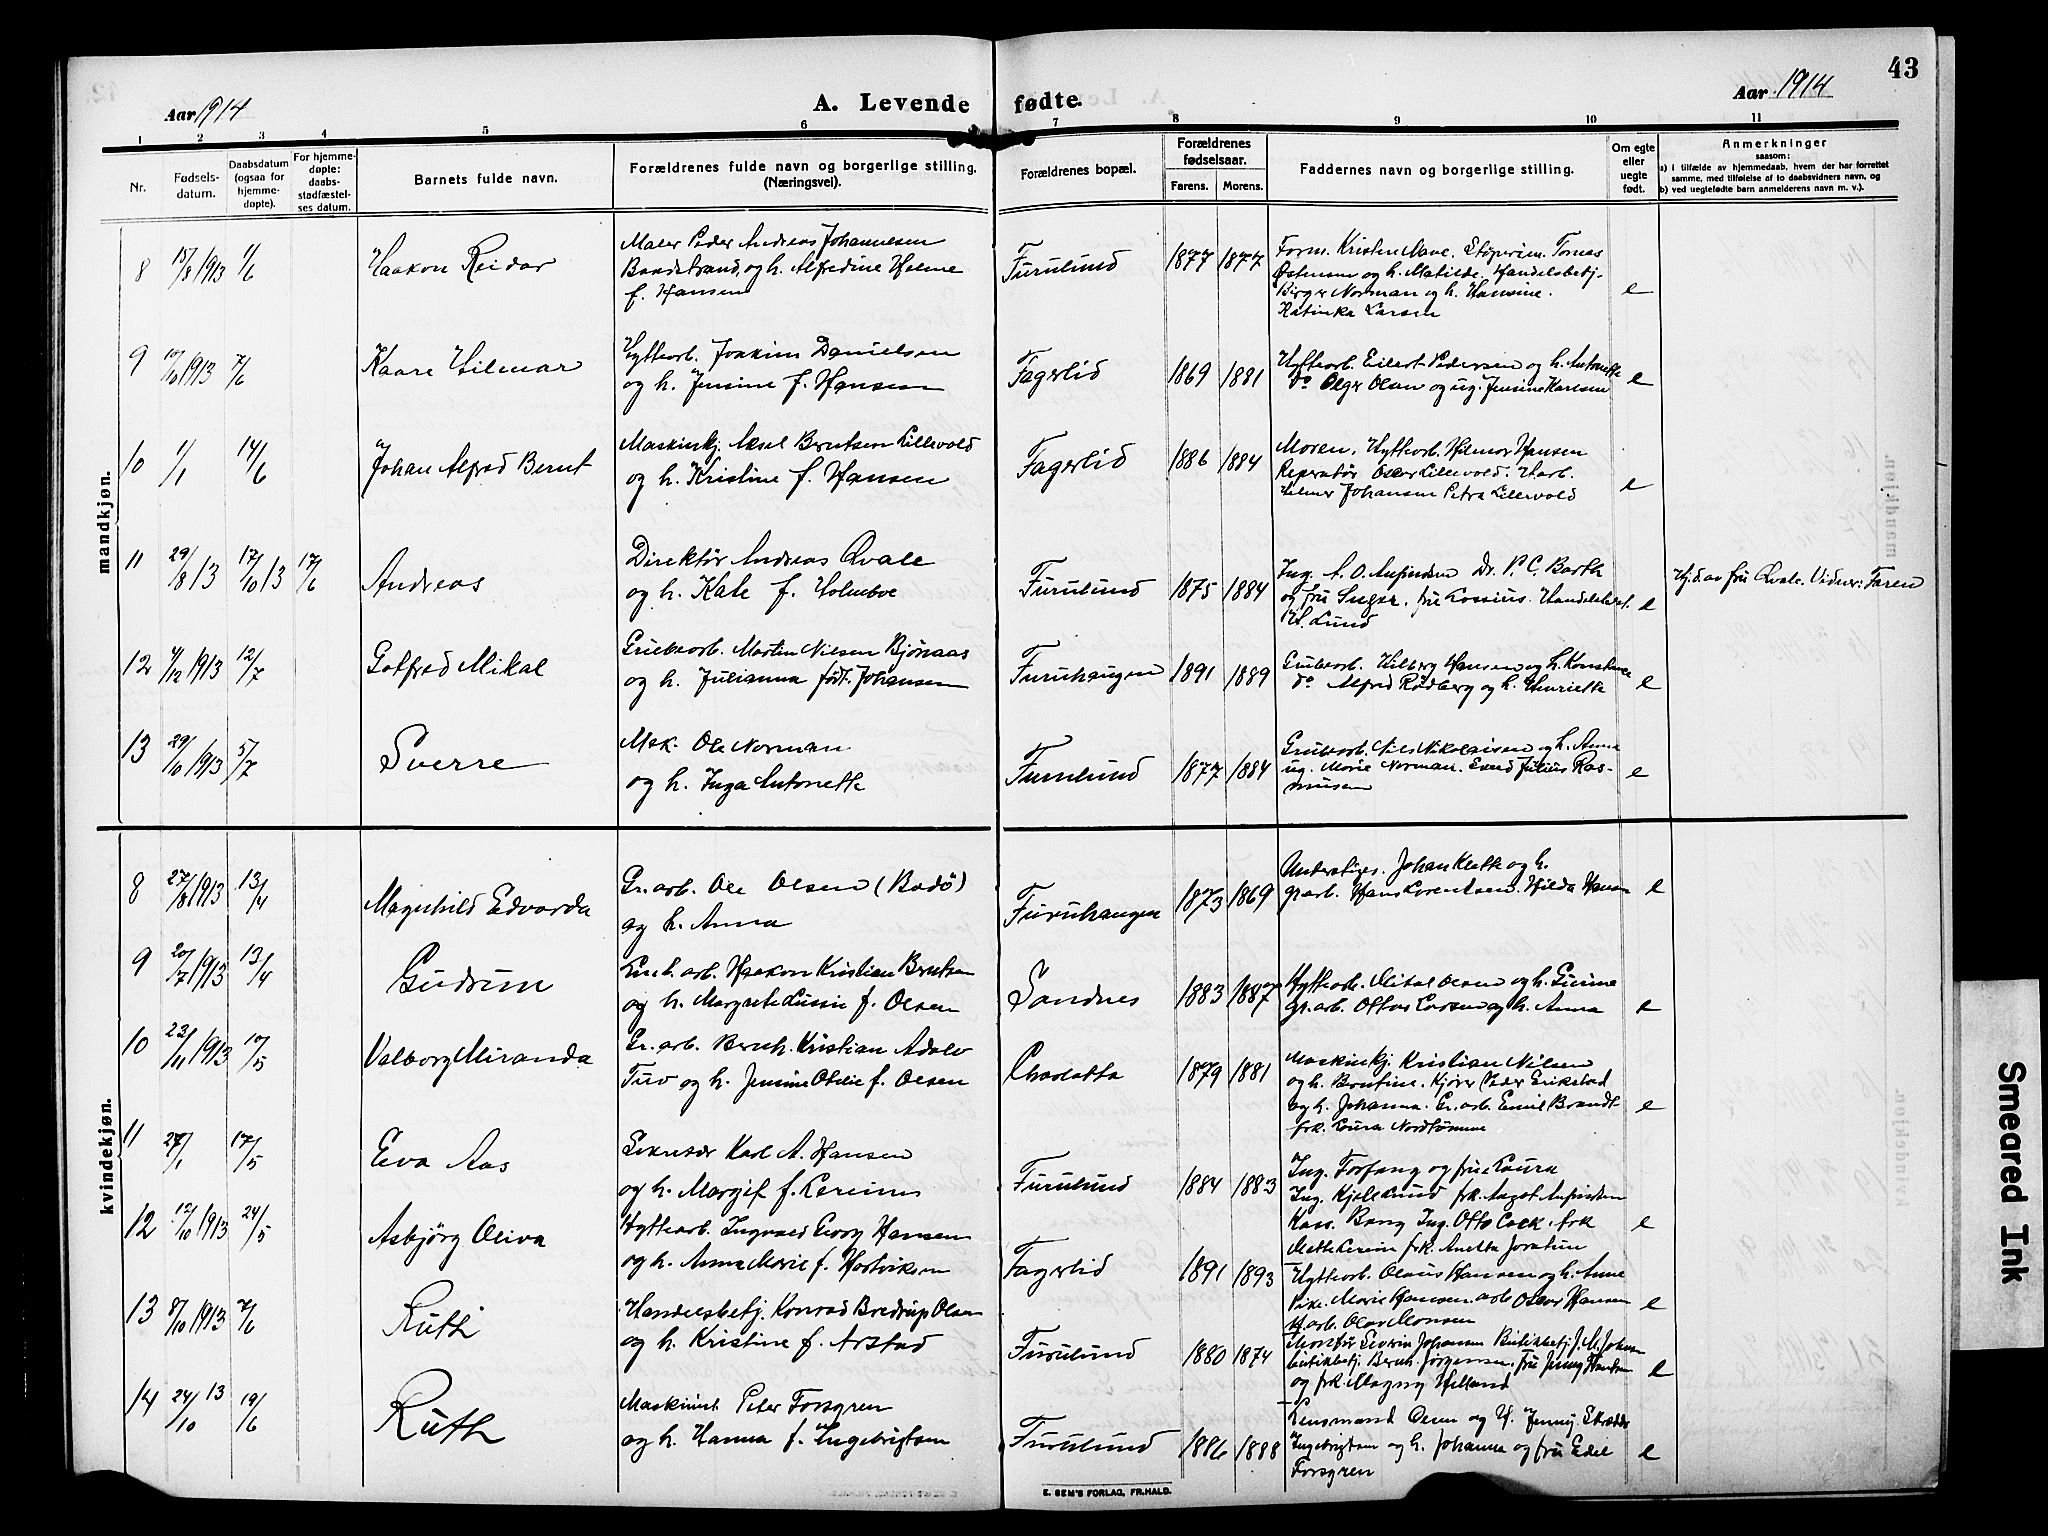 43
Aar 1914
A. Levende fødte.
Aar 1914
1 2 3 4 5 6 7 8 9 10 11
Nr.
Fødsels-
datum.
Daabsdatum
(ogsaa for
hjemme-
døpte).
For hjemme-
døpte:
daabs-
stadfæstel-
ses datum.
Barnets fulde navn.
Forældrenes fulde navn og borgerlige stilling.
(Næringsvei).
Forældrenes bopæl.
Forældrenes
fødselsaar.
Farens. Morens.
Faddernes navn og borgerlige stilling.
Om egte
eller
uegte
født.
Anmerkninger
saasom:
a) i tilfælde av hjemmedaab, hvem der har forrettet
samme, med tilføielse af to daabsvidners navn, og
b) ved uegtefødte barn anmelderens navn m. v.).
mandkjøn.
8 15/8 1913 1/6 Haakon Reidar
Maler Peder Andreas Johannesen
Bandstrand, og h. Alfredine Helene
f. Hansen
Furulund 1877 1877
Form. Kristen Nave. Støperim. Tornes
Østensen og h. Matilde. Handelsbetj.
Birger Norman og h. Hansine.
Katinka Larsen
e
9 10/10 1913 7/6 Kaare Hilmar
Hyttearb. Joakim Danielsen
og h. Jensine f. Hansen
Fagerlid 1869 1881
Hyttearb. Eilert Pedersen og h. Antonette
do Olger Olsen og ug. Jensine Karlsen
e
10 1/1 14/6 Johan Alfred Bernt
Maskinkj. Aksel Berntsen Lillevold
og h. Kristine f. Hansen
Fagerlid 1886 1884
Moren, Hyttearb. Hilmar Hansen
Reperatør Oskar Lillevold. Harb.
Helmer Johansen Petra Lillevold
e
11 29/8 13 17/10 13 17/6 Andreas
Direktør Andreas Qvale
og h. Kate f. Holmboe
Furulund 1875 1884
Ing. A. O. Anfindsen Dr. P. C. Barth
og fru Suger, fru Cossius. Handelsbest.
H. Lund
e
Hj.d. av fru Qvale. Vidner: Faren
12 4/12 1913 12/7 Gotfred Mikal
Grubearb. Martin Nilsen Bjönaas
og h. Julianna født Johansen
Furuhaugen 1891 1889
Grubearb. Hilberg Hansen og h. Konstanse
do Alfred Rødberg og h. Henriette
e
13 29/10 1913 5/7 Sverre
Msk. Ole Norman
og h. Inga Antonette
Furulund 1877 1884
Grubearb. Nils Nikolaisen og h. Anna
ug. Marie Norman. Svend Julius Ras-
musen
e
kvindekjøn.
8 27/8 1913 13/4 Magnhild Edvarda
Gr. arb. Ole Olsen (Bodø)
og h. Anna
Furuhaugen 1873 1869
Understiger. Johan Klette og h.
gr.arb. Hans Lorentsen. Hilda Hansen
e
9 20/7 1913 13/4 Gudrun
Grub. arb. Haakon Kristian Berntsen
og h. Margrete Lussie f. Olsen
Sandnes 1883 1887
Hyttearb. Mikal Olsen og h. Gunine
gr.arb. Ottar Larsen og h. Anna
e
10 23/11 1913 10/5 Valborg Miranda
Gr. arb. Bernh. Kristian Adolv
Tuv og h. Jensine Otelie f. Olsen
Charlotta 1879 1881
Maskinkj. Kristian Nilsen
og h. Bentine. Kjører Peder Erikstad
og h. Johanna. Gr. arb. Emil Brandt
frk. Laura Nordtømme
e
11 27/1 17/5 Eva Aas
Sekretær Karl A. Hansen
og h. Margit f. Lereim
Furulund 1884 1883
Ing. Forfang og frue Laura
Ing. Kjell Lund frk. Aagot Anfindsen
Kass. Bang Ing. Otto Cock. frk
Mette Lereim frk. Anetta Jorstun
e
12 12/10 1913 24/5 Asbjörg Oliva
Hyttearb. Ingvald Georg Hansen
og h. Anna Marie f. Hartviksen
Fagerlid 1891 1893
Hyttearb. Olaus Hansen og h. Anne
Pike. Marie Hansen. arb Oskar Hansen
H. arb. Olav Monsen
e
13 8/10 1913 7/6 Ruth
Handelsbetj. Konrad Bredrup Olsen
og h. Kristine f. Arstad
Furulund 1880 1874
Montør Severin Johansen Butikkbetj. J. M. Johnsen
butikkbetj. Bernh. Jörgensen, fru Jenny Knutsen
og frk. Magny Helland
e
14 24/10 13 19/6 Ruth
Maskinist Peter Forsgren
og h. Hanna f. Ingebrigtsen
Furulund 1886 1888
Lensmand Oven og H. Jenny. Skrædder
Ingebrigtsen og h. Johanna og fru Edel
Forsgren
e
E. SEM'S FORLAG, FR.HALD.
Smeared Ink